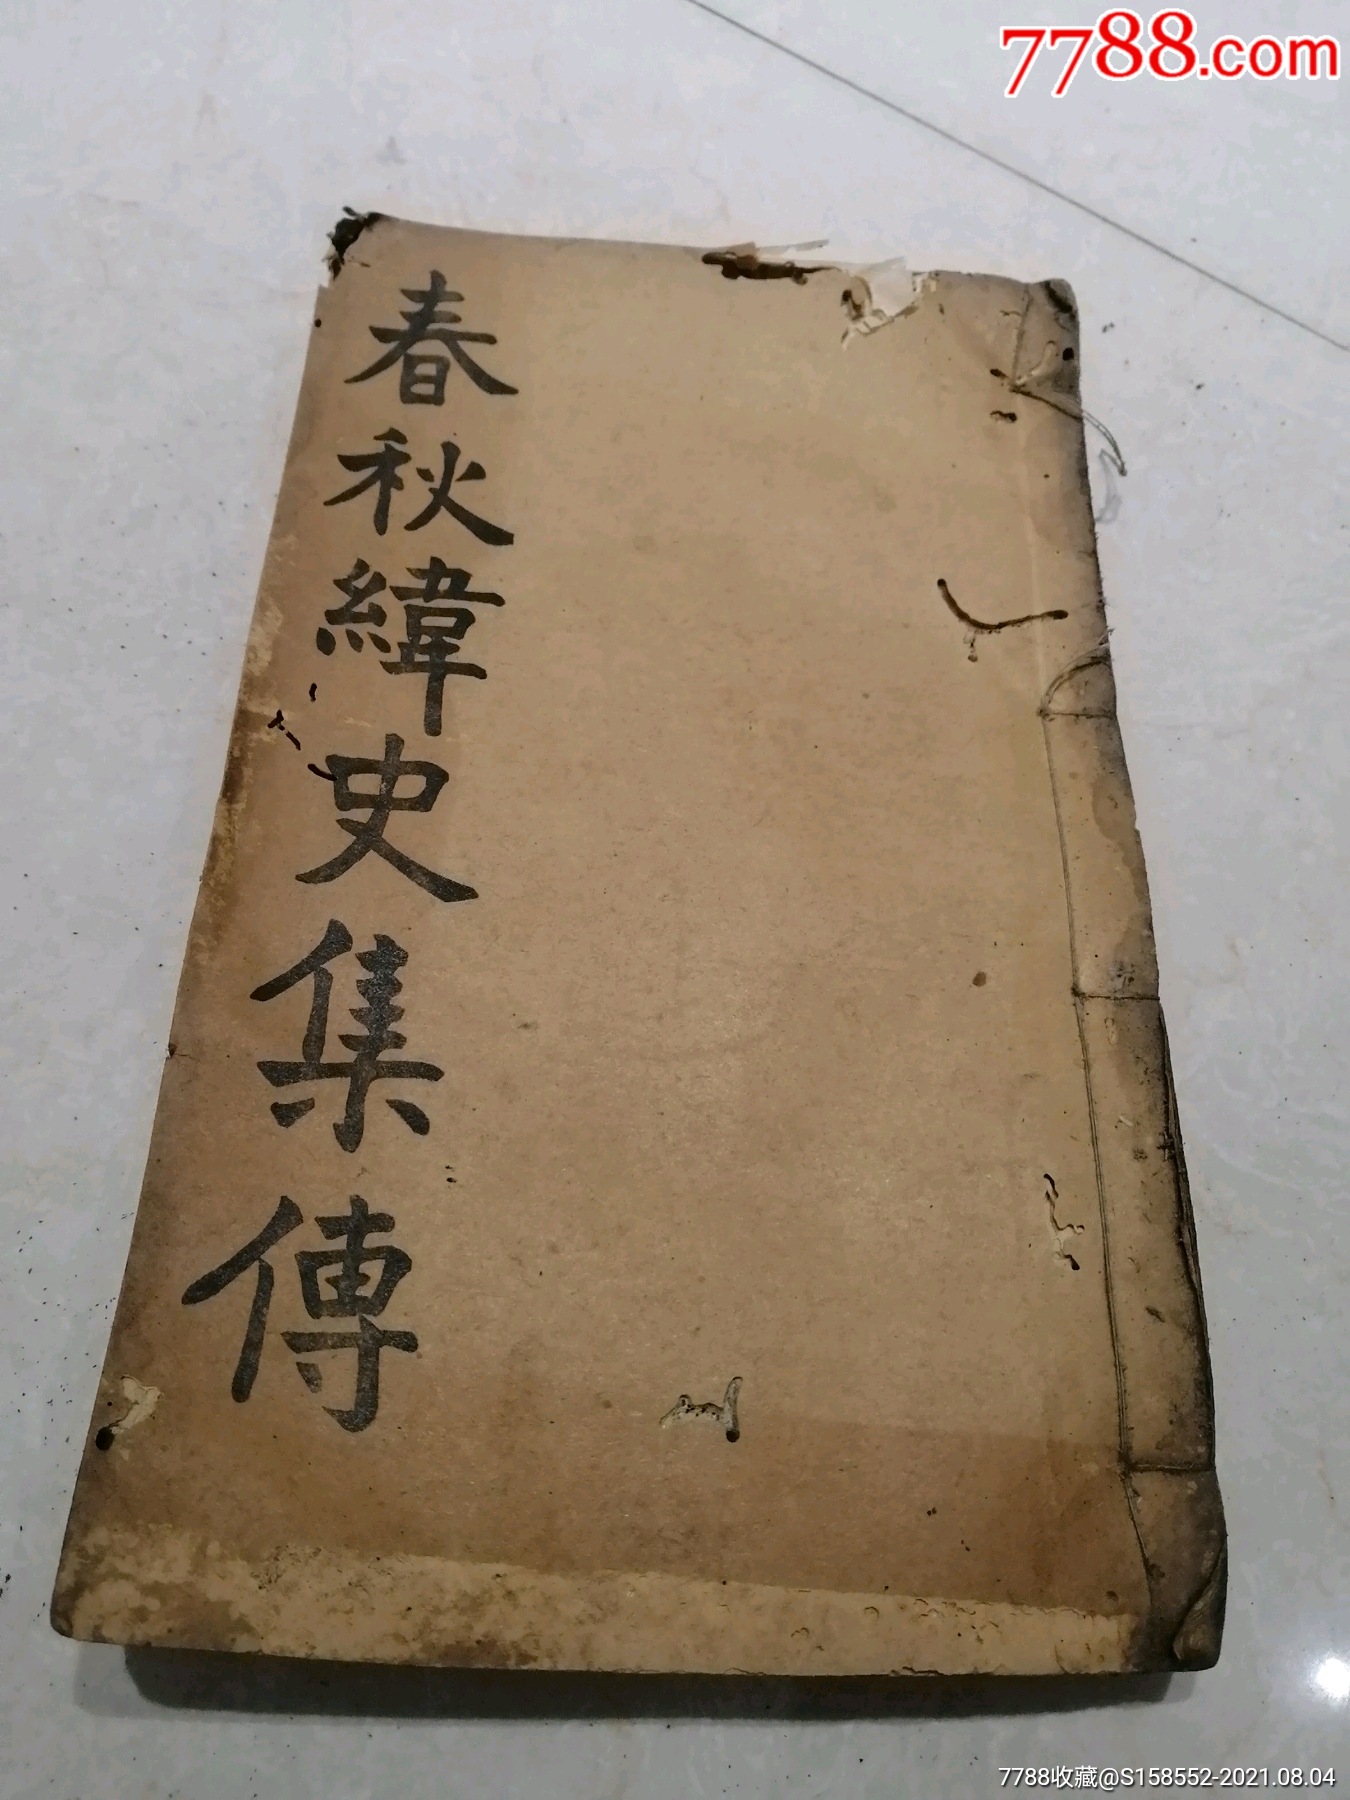 7788.com
春秋緯史集傳
7788收藏@S158552-2021.08.04